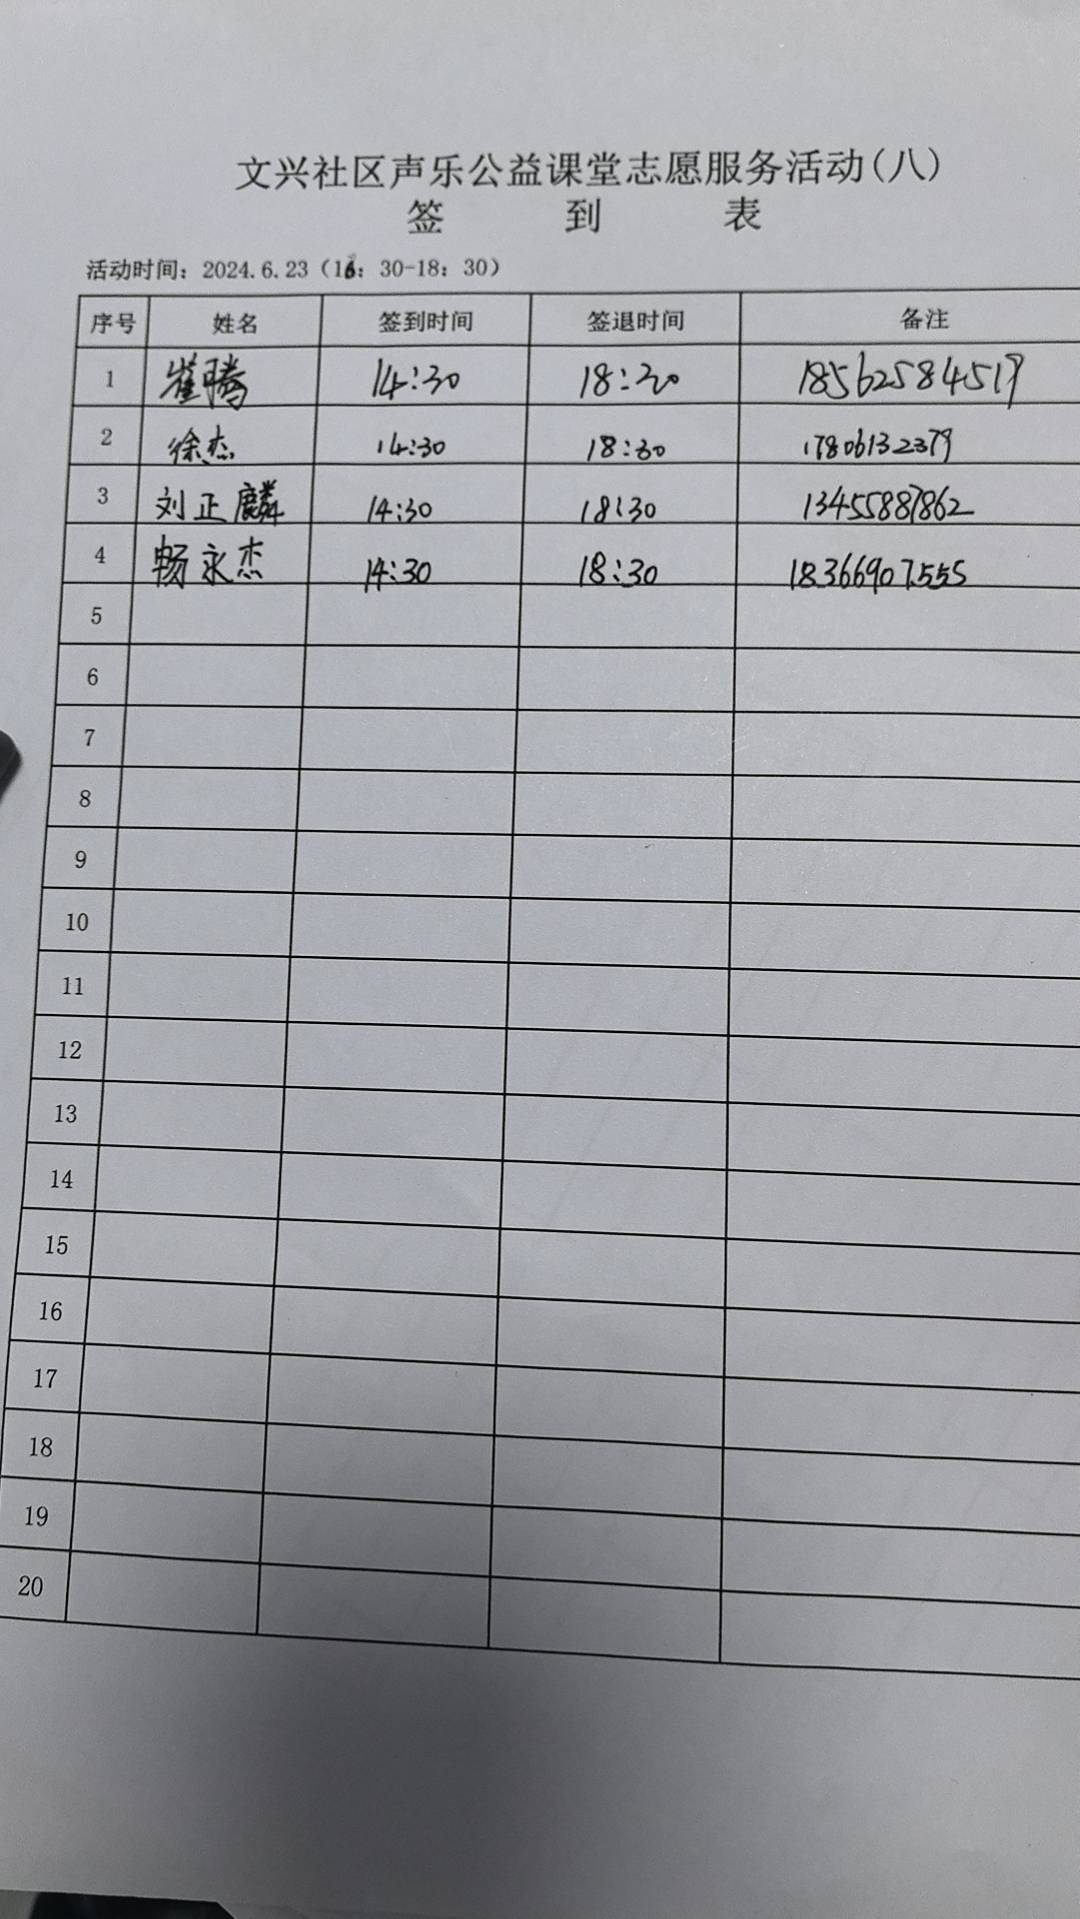 文兴社区声乐公益课堂志愿服务活动(八)
签 到 表
活动时间：2024.6.23（16：30-18：30）
序号 姓名 签到时间 签退时间 备注
1 崔腾 14:30 18:30 18562584519
2 徐杰 14:30 18:30 17806132379
3 刘正麟 14:30 18:30 13455887862
4 畅永杰 14:30 18:30 18366907555
5
6
7
8
9
10
11
12
13
14
15
16
17
18
19
20